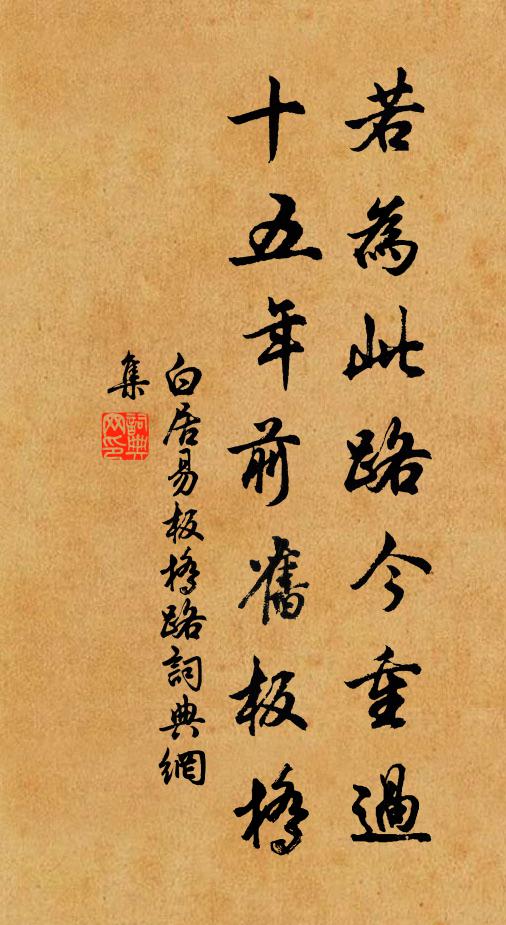 若為此路今重過
十五年前舊板橋
白居易板橋路詞典網
集
詞典網印